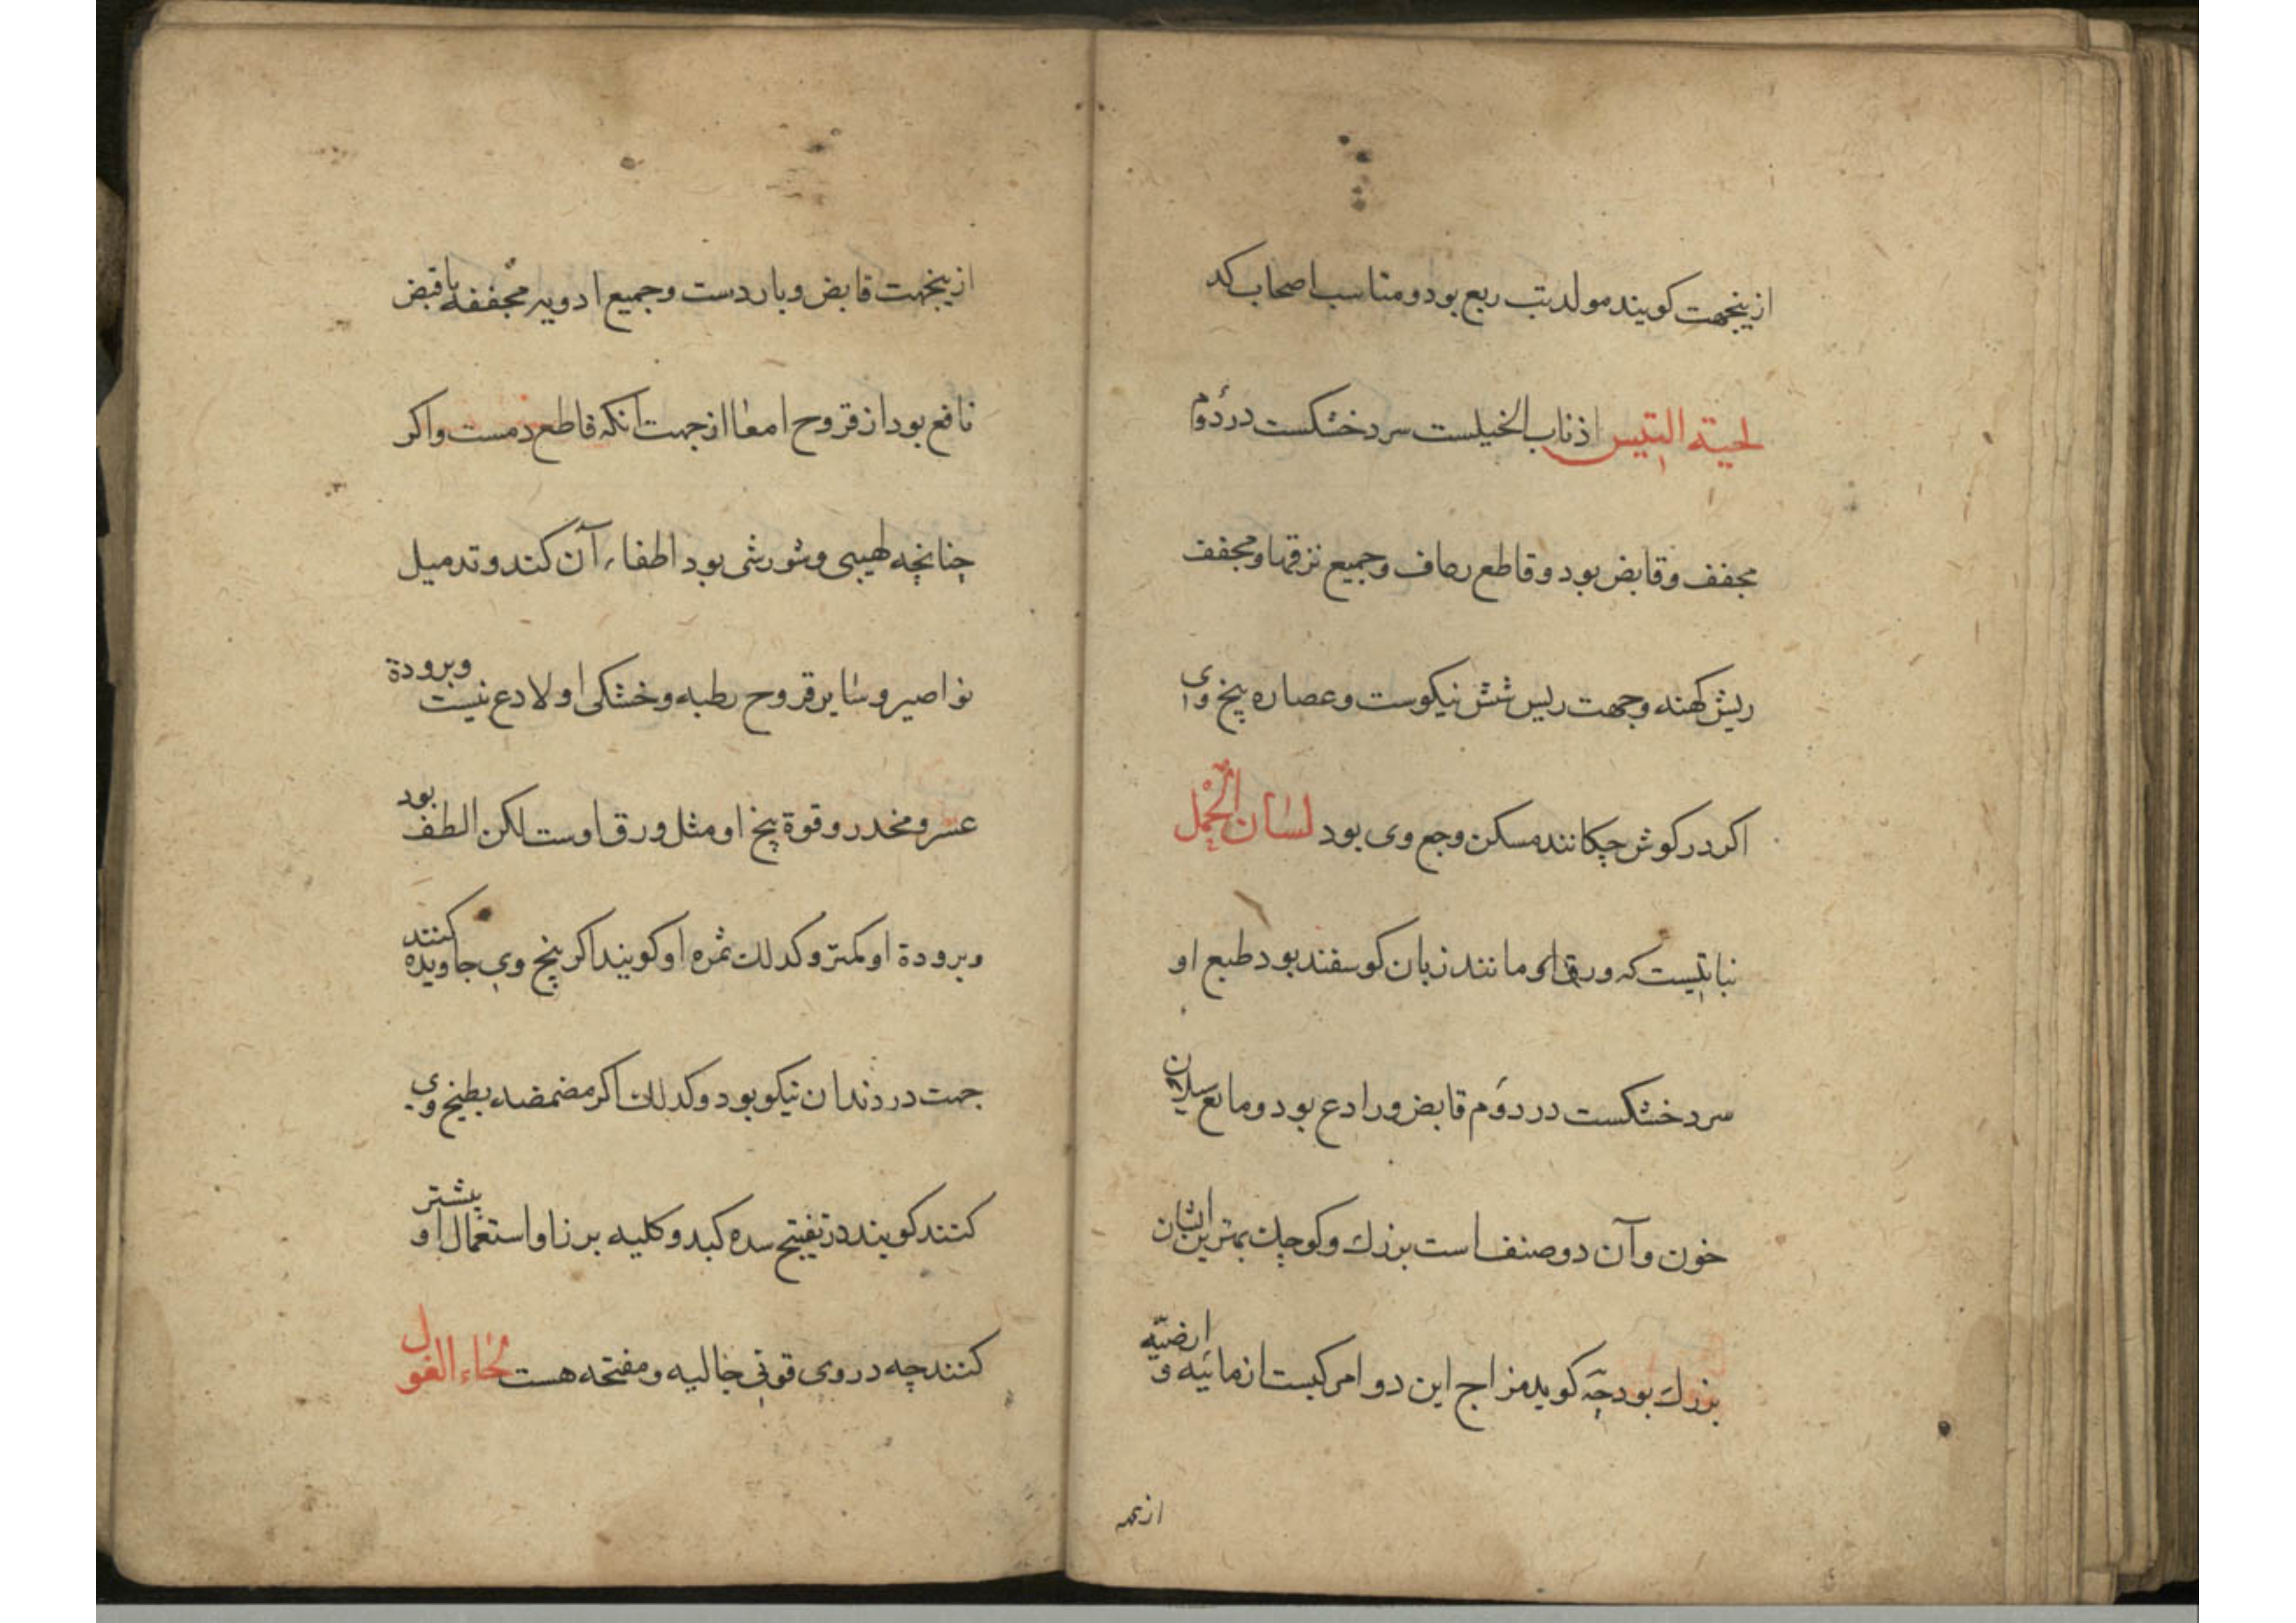 ازینجهت کویند مولد تب ربع بود و مناسب اصحاب کد
لحیته التیس اذناب الخیلست سرد خشکست در دوم
مجفف و قابض بود و قاطع رعاف و جمیع نزفها و مجفف
ریش کهنه و جهت ریس شش نیکوست و عصاره بیخ وی
اکر در کوش چکانند مسکن وجع وی بود لسان الحمل
نباتیست که ورق او مانند زبان کوسفند بود طبع او
سرد خشکست در دوم قابض و رادع بود و مانع سیلان
خون و آن دو صنف است بزرک و کوچک بهترین ایشان
بزرک بود چه کوید مزاج این دوا مرکبست از مائیه و ارضیه
ازینجهت قابض و باردست و جمیع ادویه مجففه با قبض
نافع بود از قروح امعا از جهت آنکه قاطع دمست و اکر
چنانچه لهیبی و شورشی بود اطفاء آن کند و تدمیل
نواصیر و سایر قروح رطبه و خشکی او لادع نیست وبرودة
عسر و مخدر و قوة بیخ او مثل ورق اوست لکن الطف بود
و برودة او کمتر و کدلک ثمره او کویند اکر بیخ وی جاویده کنند
جهت درد ندان نیکو بود و کدلک اکر مضمضه بطبخ وی
کنند کویند در تفتیح سده کبد و کلیه برز او استعمال او بیشتر
کنند چه در وی قوتی جالیه و مفتحه هست لحاء الغول